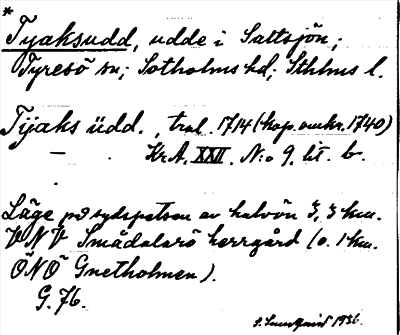 *
Tyaksudd, udde i Saltsjön;
Tyresö sn; Sotholms hd; Sthlms l.
Tijaks üdd., tral. 1714 (kop. omkr. 1740)
— . Kr.A. XXII. N:o 9. lit. b.
Läge på sydspetsen av halvön 3,3 km.
VNV Smådalarö herrgård (o. 1 km.
ÖNÖ Gnetholmen).
G. 76.
1936.